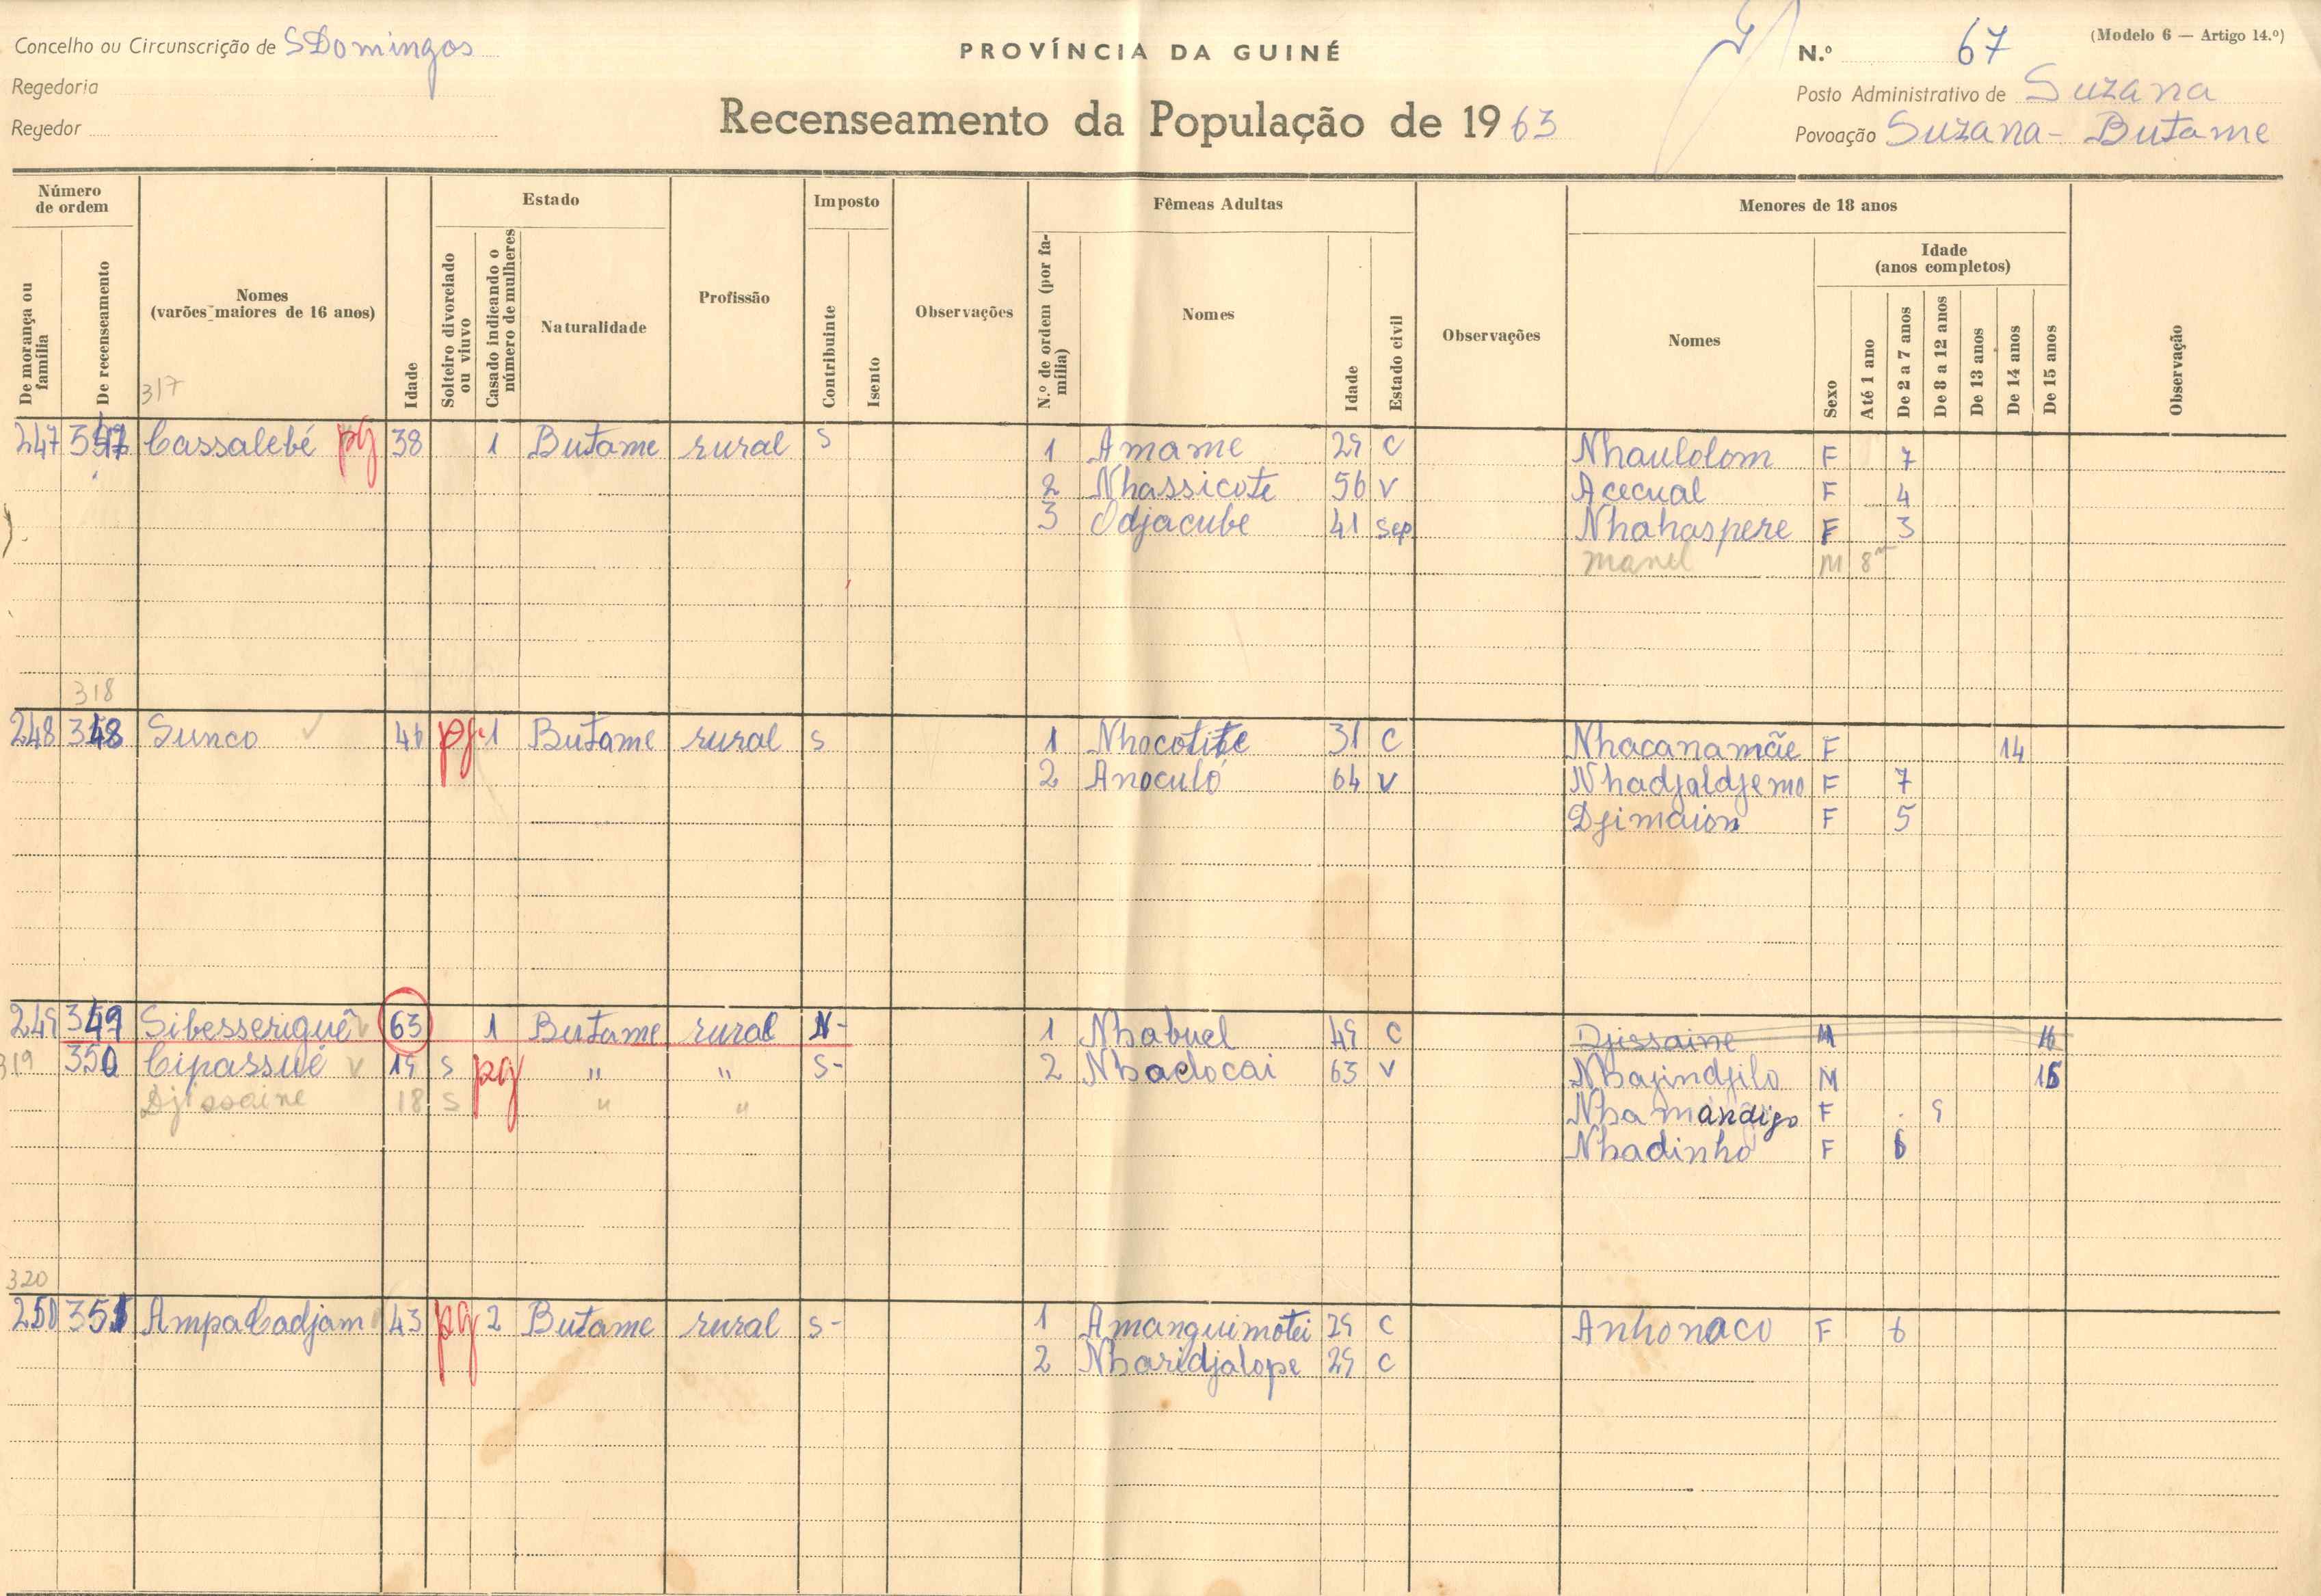 Concelho ou Circunscrição de S Domingos
Regedoria
Regedor
PROVÍNCIA DA GUINÉ
Recenseamento da População de 1963
(Modelo 6 — Artigo 14.º)
N.º 67
Posto Administrativo de Suzana
Povoação Suzana - Butame
Número de ordem
De morança ou família
De recenseamento
Nomes
(varões maiores de 16 anos)
Idade
Estado
Solteiro divorciado ou viuvo
Casado indicando o número de mulheres
Naturalidade
Profissão
Imposto
Contribuinte
Isento
Observações
Fêmeas Adultas
N.º de ordem (por família)
Nomes
Idade
Estado civil
Observações
Menores de 18 anos
Nomes
Idade
(anos completos)
Sexo
Até 1 ano
De 2 a 7 anos
De 8 a 12 anos
De 13 anos
De 14 anos
De 15 anos
Observação
317
247 Cassalebé pg 38 1 Butame rural S 1 Amame 29 C Nhaulolom F 7
2 Nhassicote 56 V Acecual F 4
3 Odjacube 41 Sep Nhahaspere F 3
Manel M 8m
318
248 348 Sunco 46 pg. 1 Butame rural S 1 Nhocotite 31 C Nhacanamãe F 14
2 Anoculó 64 V Nhadjaldjemo F 7
Djimaion F 5
249 349 Sibesseriguê 63 1 Butame rural N- 1 Nhabuel 49 C Djissaine M 16
319 350 Cipassué 19 S pg " " S- 2 Nhadocai 63 V Nhajindjilo M 15
Djissaine 18 S " " Nhamandigo F 9
Nhadinho F 6
320
250 351 Ampacadjam 43 pg 2 Butame rural S- 1 Amanguimotei 39 C Anhonaco F 6
2 Nharidjalope 29 C